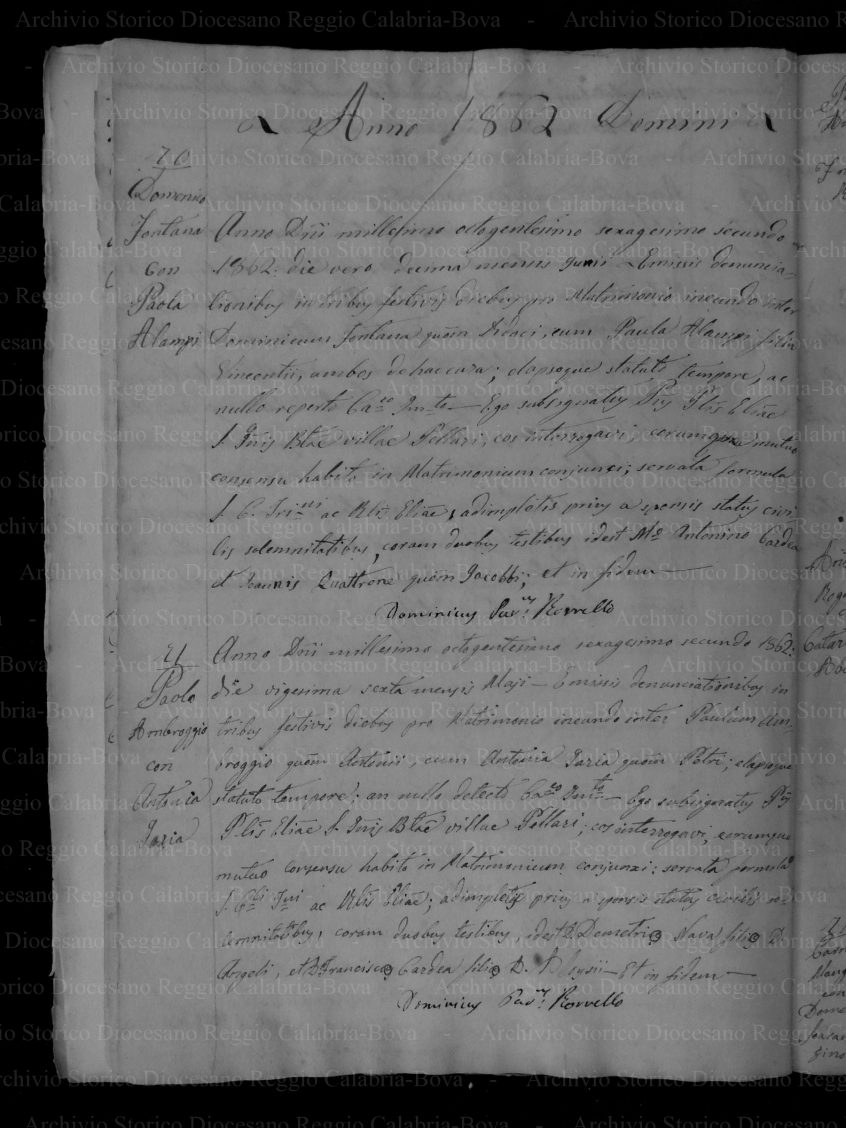 Anno 1862 Domini
70
Domenico
Fontana
con
Paola
Alampi
Anno Dñi millesimo octogentesimo sexagesimo secundo
1862. die vero decima mensis Junii Emissis denuncia-
tionibus in tribus festivis diebus pro Matrimonio ineundo inter
Dominicum Fontana quõm cum Paula Alampi filia
Vincentii, ambos de hac cara; elapsoque statuto tempore, ac
nullo reperto Ca:co Im:to — Ego subsignatus Elĩae
villae Pellari, eos interrogavi, eorumque mutuo
consensu habito in Matrimonium conjunxi; servata formula
S. C. ac Elĩae, adimpletis prius a sponsis status civi-
lis solemnitatibus, coram duobus testibus idest M:o Antonino Cardea
et Joannis Quattrone quõm Jacobbi; et in fidem —
Dominicus Par:us Rovvello
71
Paolo
Ambroggio
con
Antonia
Iaria
Anno Dñi millesimo octogentesimo sexagesimo secundo 1862.
die vigesima sexta mensis Maji — Emissis denunciationibus in
tribus festivis diebus pro Matrimonio ineundo inter Paulum Am-
broggio quõm Antonii, cum Antonia Iaria quõm Petri; elapsoque
statuto tempore; an nullo detecto Ca:co Im:to — Ego subsignatus
Elĩae villae Pellari; eos interrogavi, eorumque
mutuo consensu habito in Matrimonium conjunxi; servata formula
S. ac Elĩae; adimpletis prius a sponsis status civilis so-
lemnitatibus, coram duobus testibus, idest D. Demetrio Nava filio D.
Angeli, et D. Francisco Cardea filio D. Aloysii — Et in fidem —
Dominicus Par:us Rovvello
Archivio Storico Diocesano Reggio Calabria-Bova